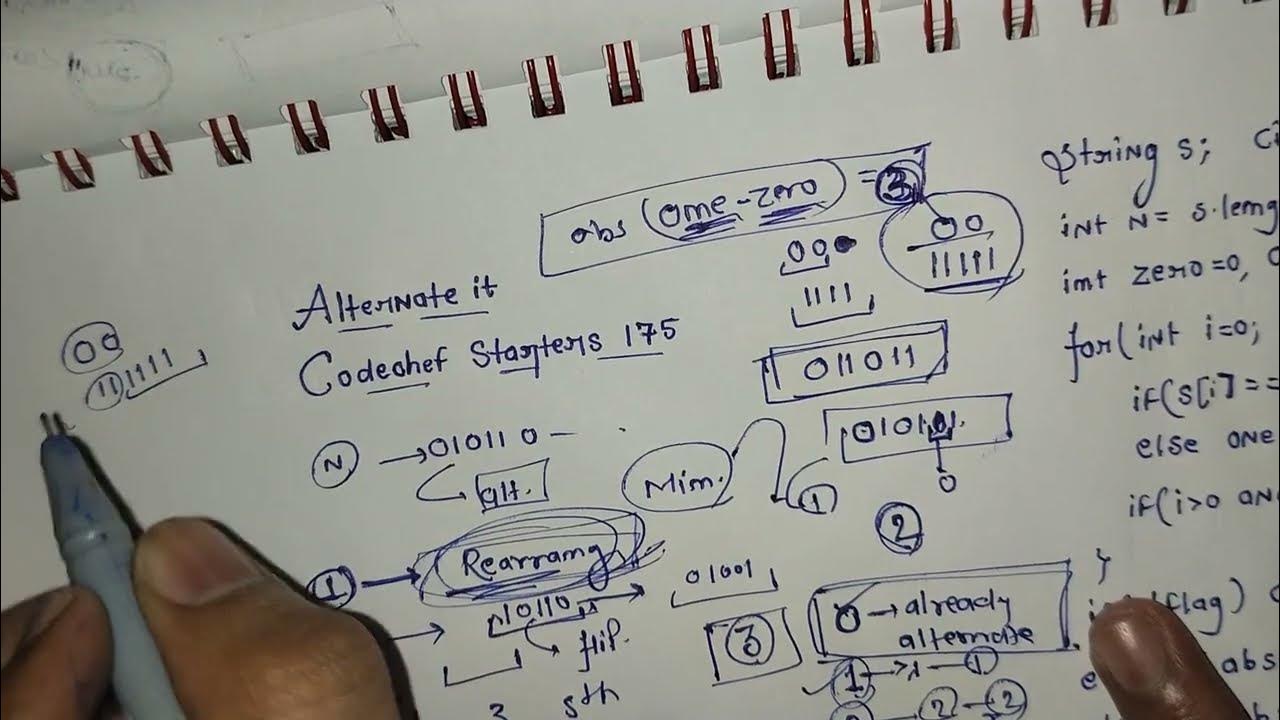 abs (one-zero) = 3
00
11111
000
1111
Alternate it
Codechef Starters 175
00
111111
011011
010101.
0
N → 010110 —
alt.
Min.
1
2
1 → Rearrang
10110
01001
flip.
3
0 → already
alternate
1 → 1 — 1
2 → 2 — 2
sth
string s;
int N = s.leng
int zero=0,
for(int i=0;
if(s[i]==
else one
if(i>0 an
}
flag)
abs